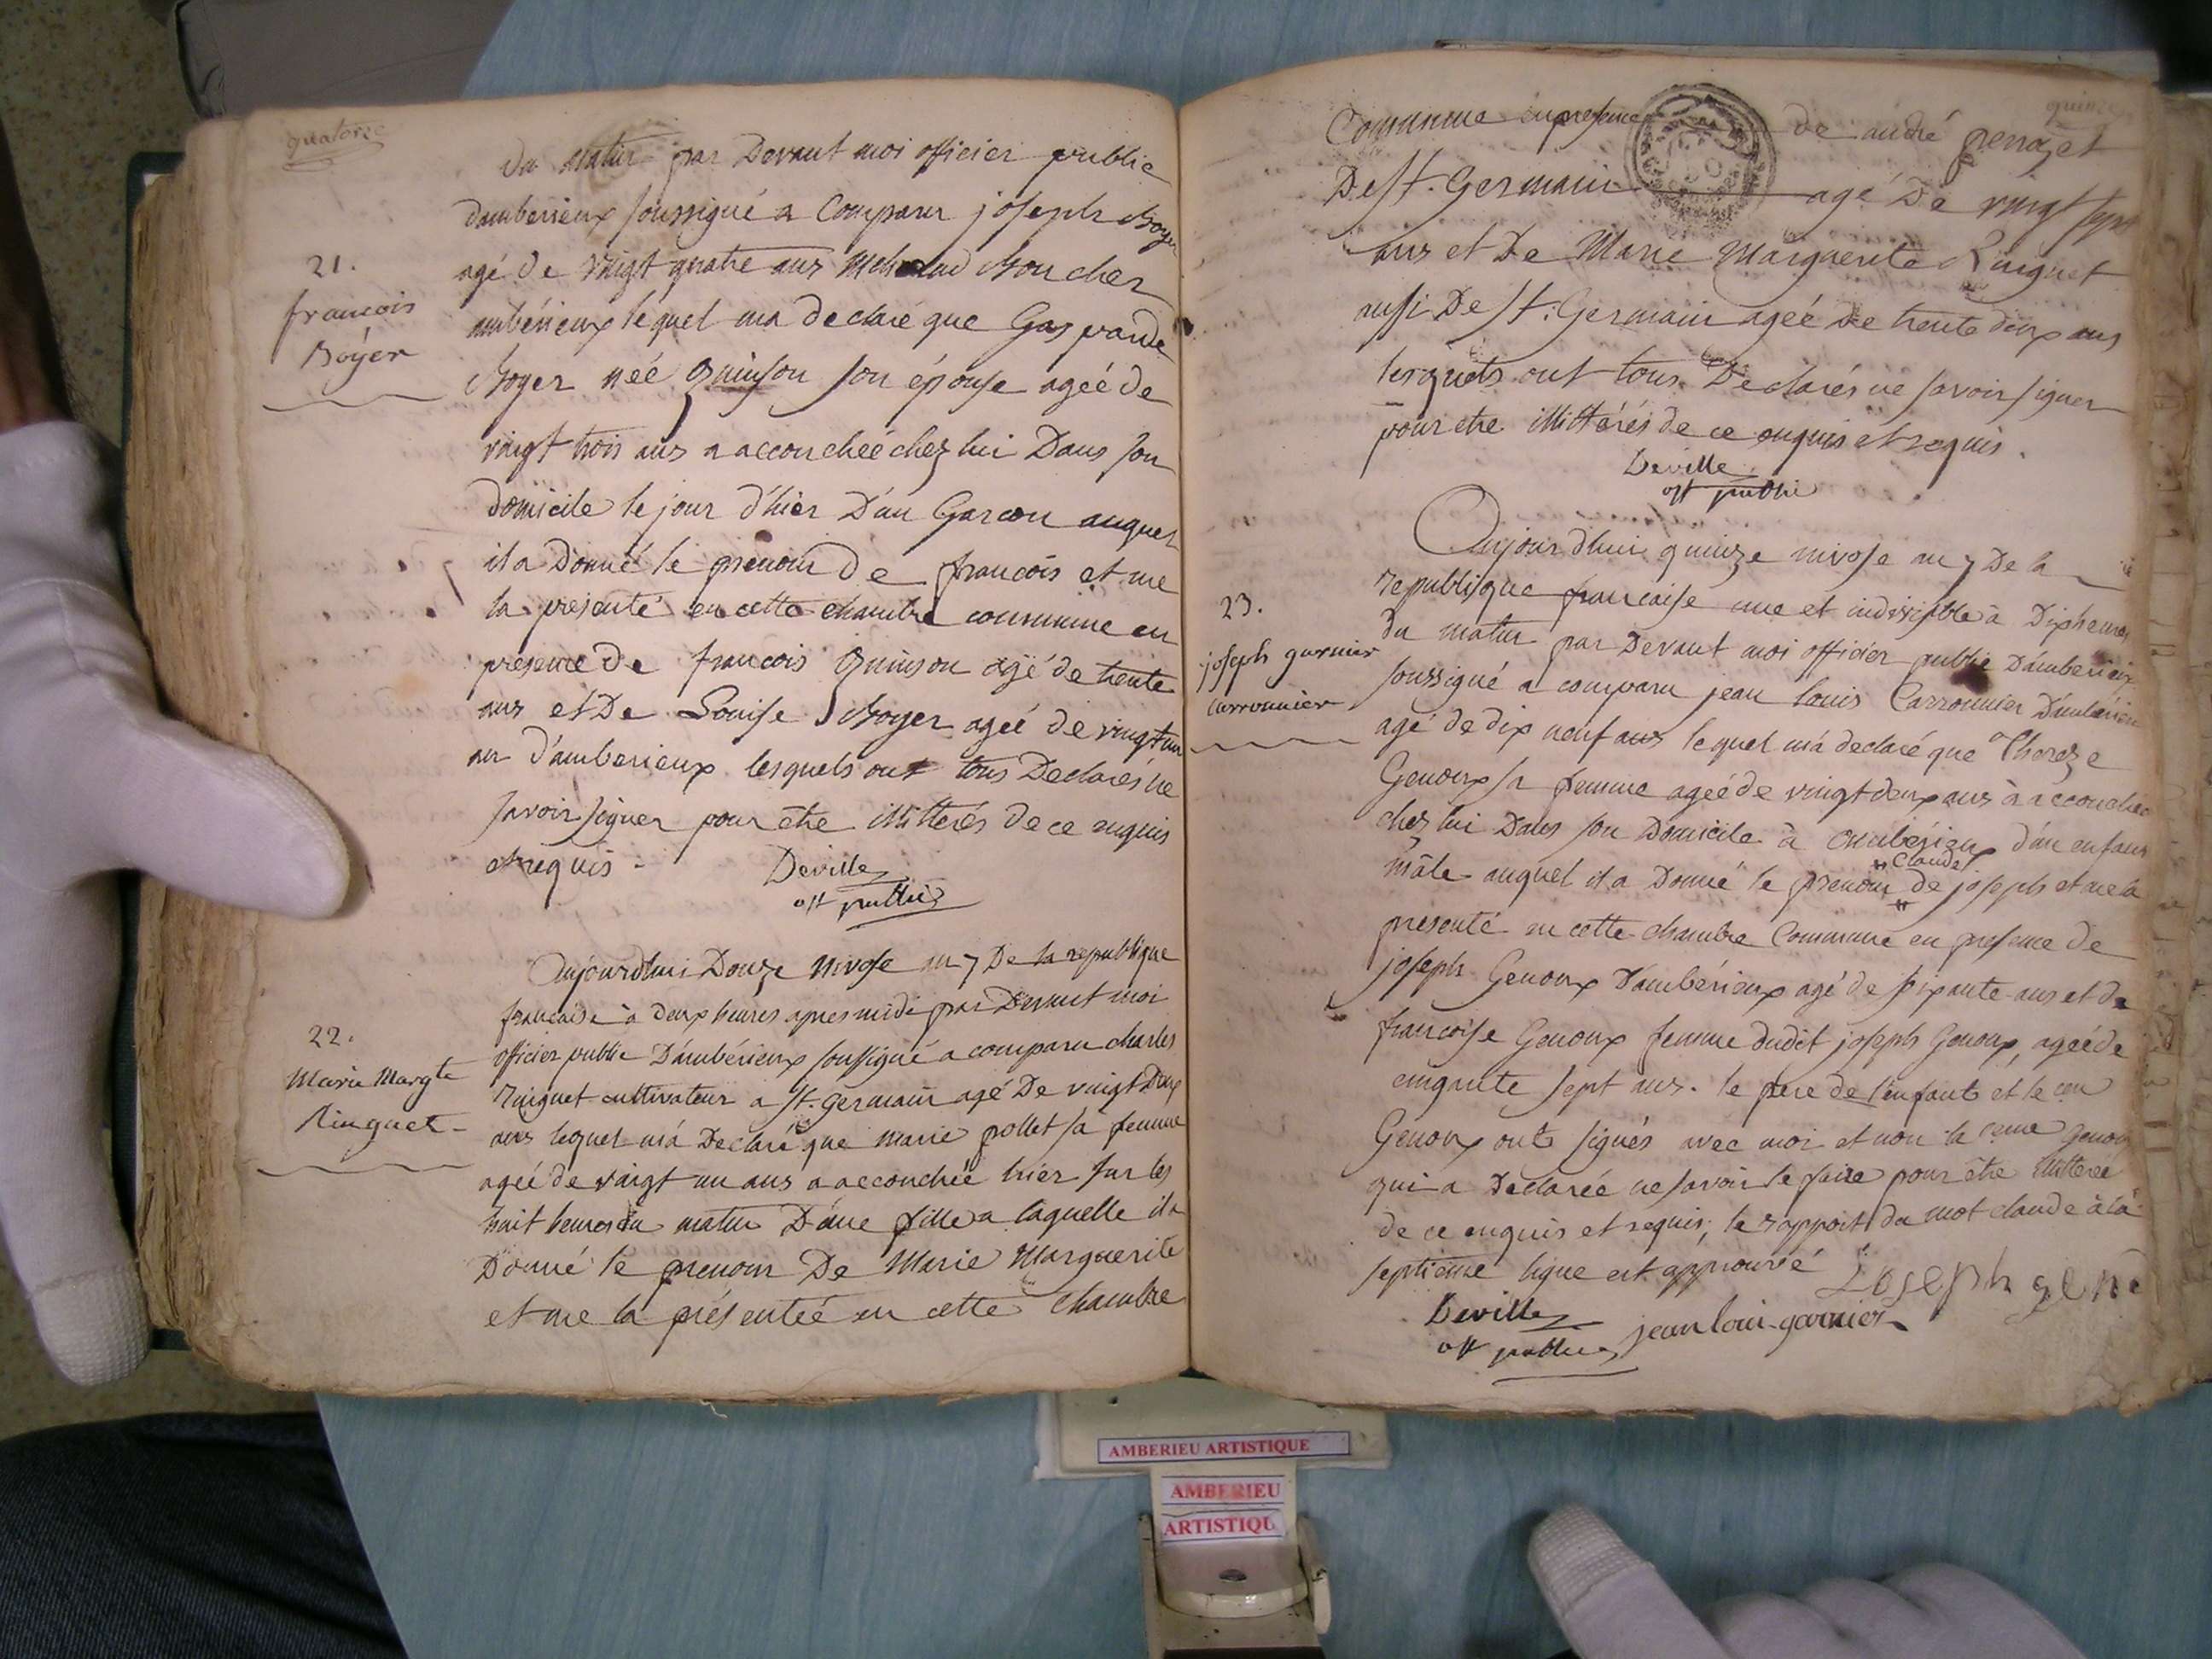 quatorze
du matin par Devant moi officier public
damberieux soussigné a Comparu joseph Boyer
agé de vingt quatre ans Mchand Boucher
ambérieux lequel ma declaré que Gasparde
Boyer née Quinson son épouse ageé de
vingt trois ans a accoucheé chez lui Dans son
domicile le jour d'hier D'un Garcon auquel
il a Donné le prénom De francois et me
la presenté en cette chambre commune en
presence De francois Quinson agé de trente
ans et De Louise Boyer ageé de vingt un
an d'amberieux lesquels ont tous Declarés ne
savoir signer pour être illitterés de ce enquis
et requis.
Deville
off public
21.
francois
Boyer
Aujourdhui Douze Nivose an 7 De la republique
francaise à deux heures apres midi par Devant moi
officier public D'ambérieux soussigné a comparu charles
Ringuet cultivateur a St. Germain agé De vingt Deux
ans lequel m'a Declaré que marie pollet sa femme
ageé de vingt un ans a accouchée hier sur les
huit heures du matin D'une fille a laquelle il a
Donné le prenom De Marie Marguerite
et me la présenteé en cette chambre
22.
Marie Margte
Ringuet
quinze
Commune en presence de andré perrozet
De St. Germain agé De vingt sept
ans et De Marie Marguerite Ringuet
aussi De St. Germain ageé De trente deux ans
lesquels ont tous Declarés ne savoir signer
pour etre illittérés de ce enquis et requis.
Deville
off public
Aujourdhui quinze nivose an 7 De la
republique francaise une et indivisible à Dix heures
du matin par Devant moi officier public D'amberieux
soussigné a comparu jean louis Carronnier D'ambérieux
agé de dix neuf ans lequel m'a declaré que Thereze
Genoux sa femme ageé de vingt deux ans à accouchée
chez lui Dans son Domicile à ambérieux d'un enfant
Claude
mâle auquel il a Donné le prenom de joseph et me la
presenté en cette chambre Commune en presence de
joseph Genoux D'ambérieux agé de soixante ans et de
francoise Genoux femme dudit joseph Genoux, ageé de
cinquante sept ans. le pere de l'enfant et le cen
Genoux ont signés avec moi et non la cenne Genoux
qui a Declarée ne savoir le faire pour être illitteré
de ce enquis et requis; le rapport du mot claude à la
septieme ligne est approuvé
Joseph gene
Deville
off public
jean loui garnier
23.
joseph garnier
carronnier
AMBERIEU ARTISTIQUE
AMBERIEU
ARTISTIQU